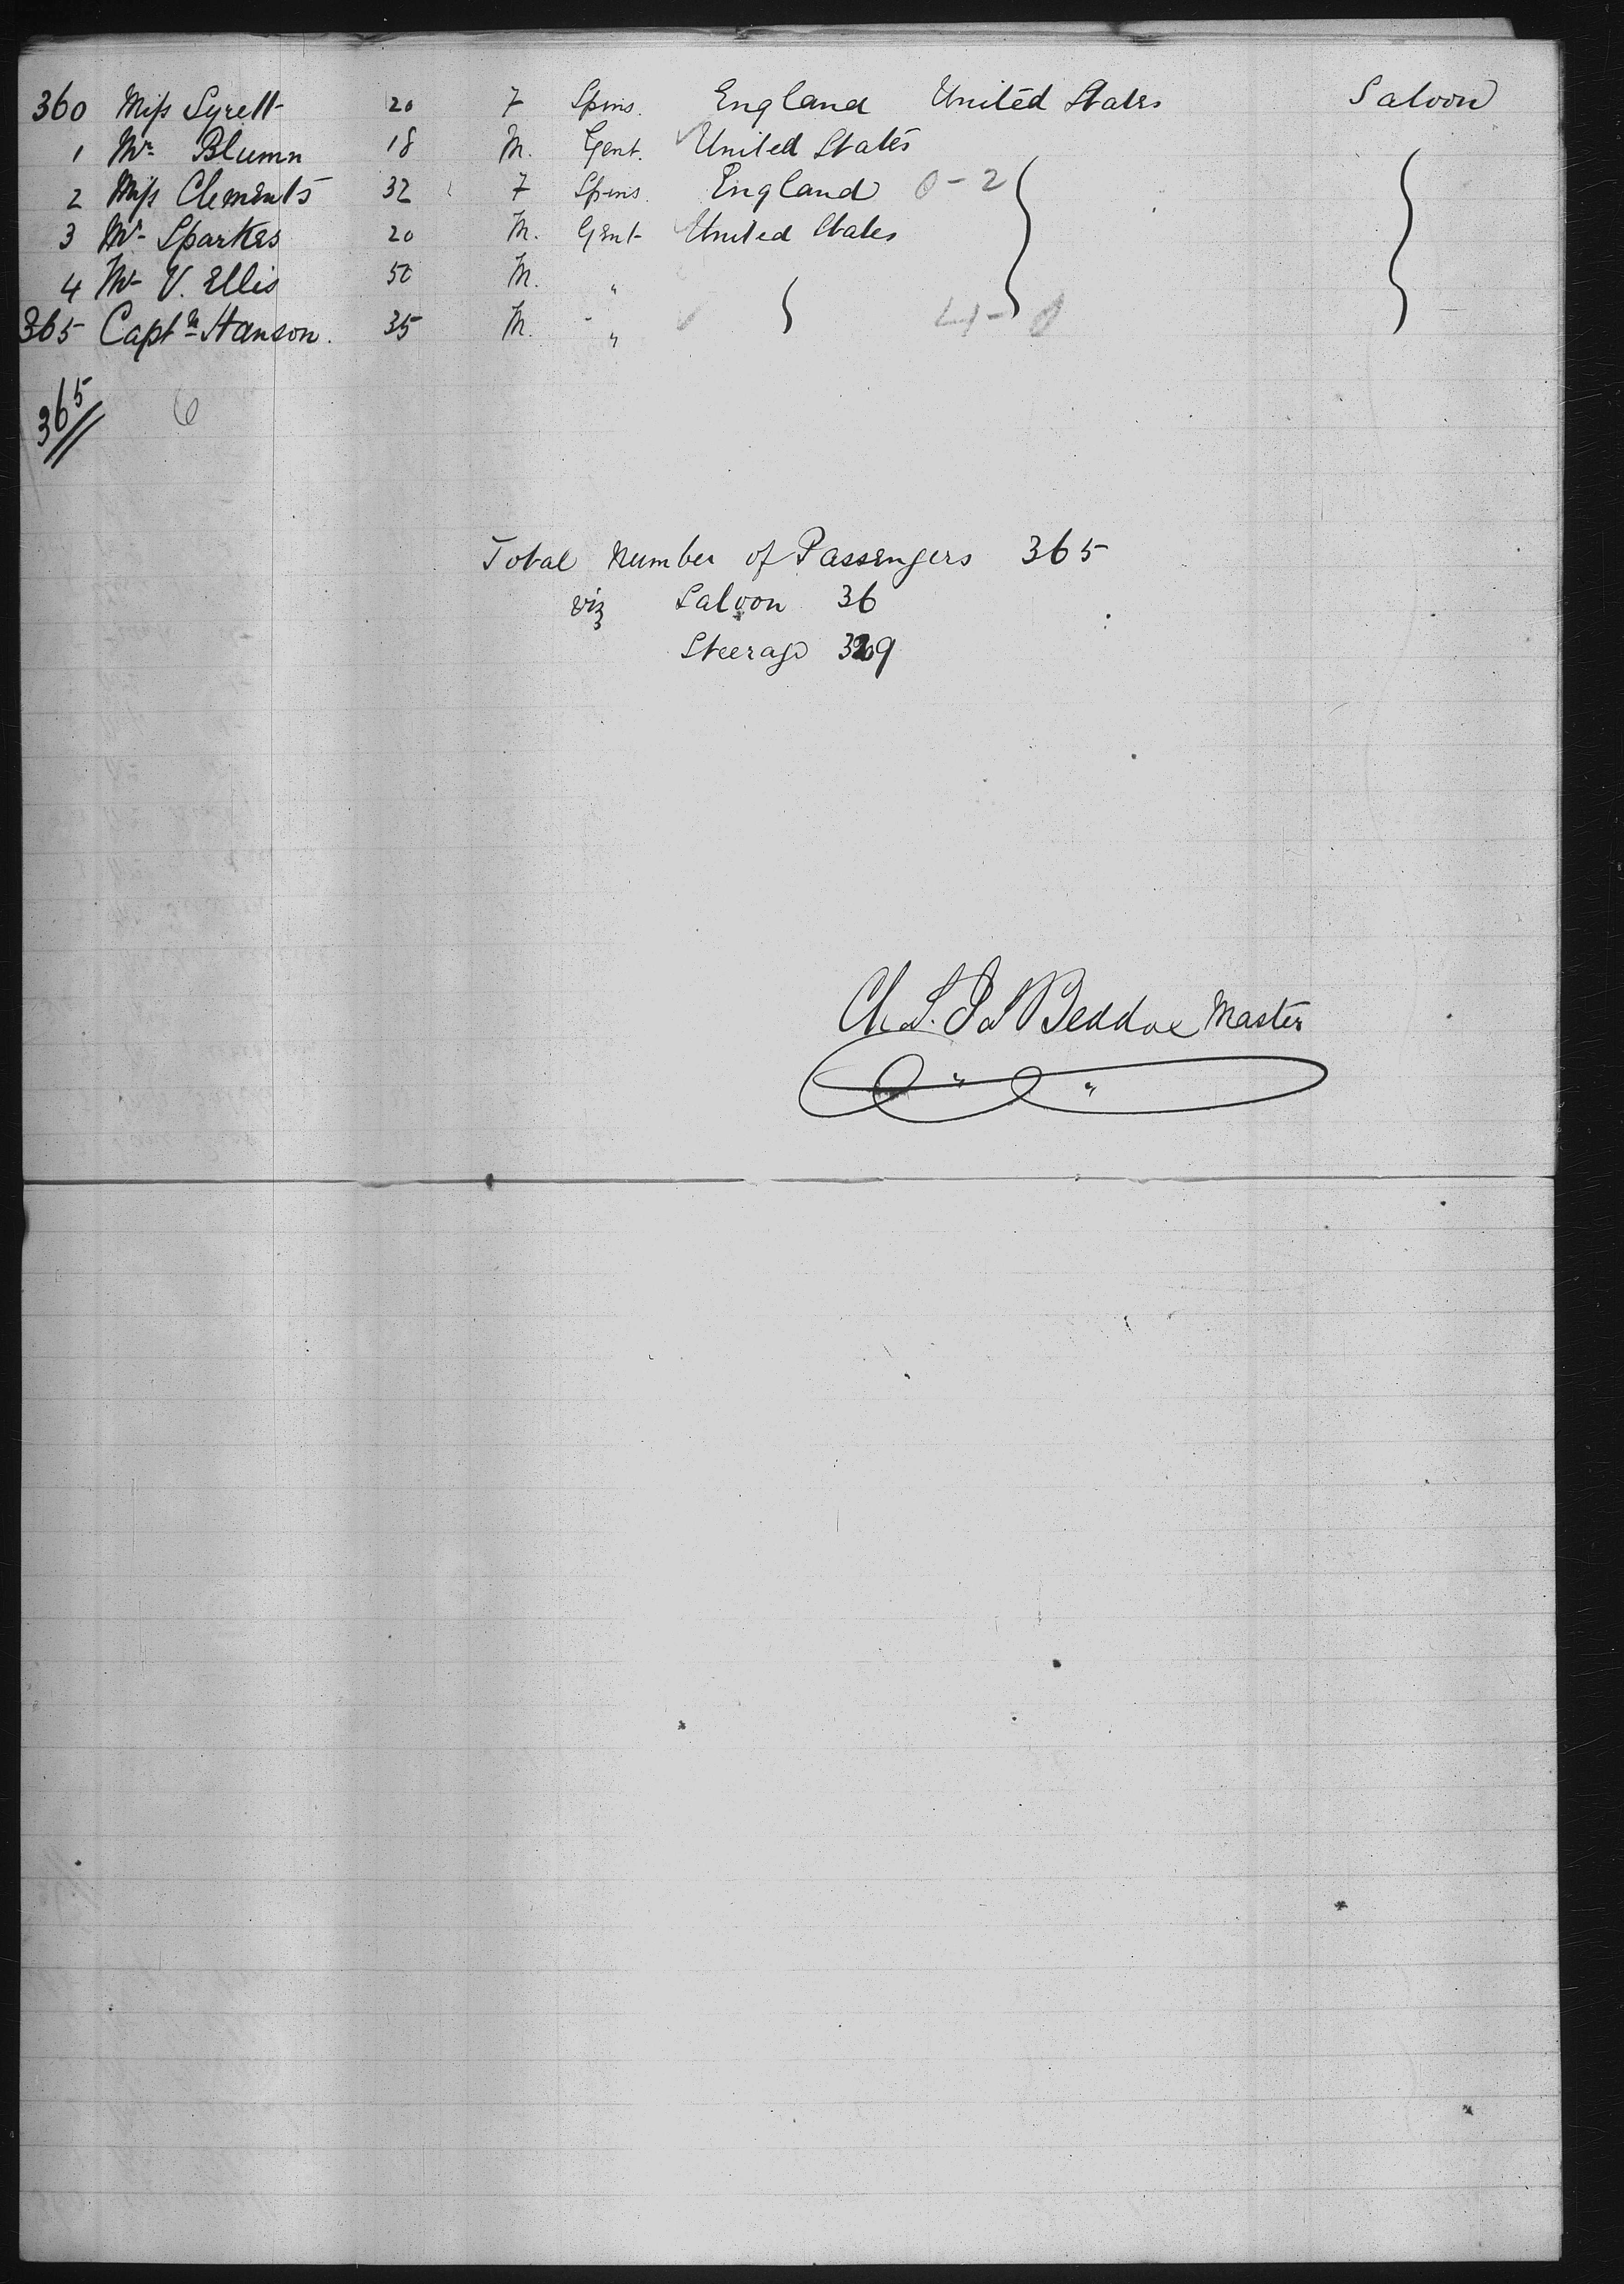 360 Miss Syrett 20 F Spins. England United States Saloon
1 Mr Blumn 18 M. Gent. United States
2 Miss Clements 32 F Spins. England 0-2
3 Mr Sparkes 20 M. Gent United States
4 Mr V. Ellis 50 M. "
365 Captn Hanson. 35 M. " 4-0
365
6
Total Number of Passengers 365
viz Saloon 36
Steerage 329
Beddoe Master